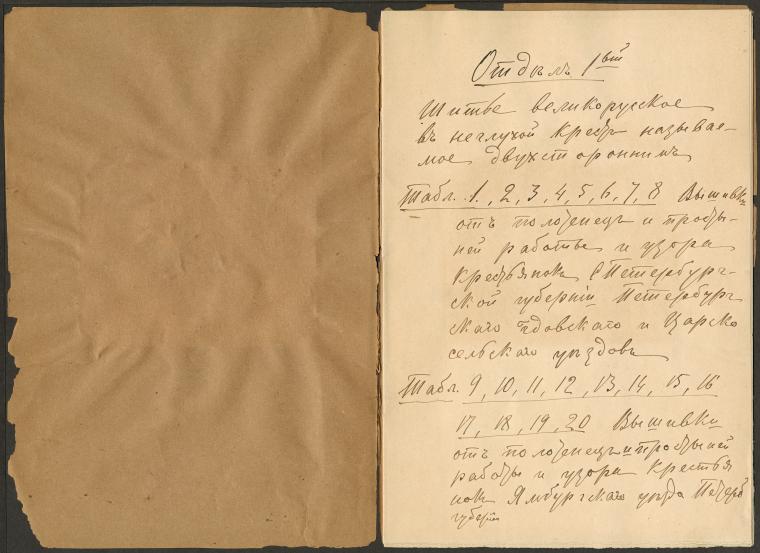 Отдѣлъ 1ый
Шитье великорусское
въ неглухой крестъ называе-
мое двухстороннимъ
Табл. 1, 2, 3, 4, 5, 6, 7, 8 Вышивки
отъ полотенецъ и просты-
ней работы и узора
крестьянокъ СПетербург-
ской губерніи Петербург
скаго Гдовскаго и Царско
сельскаго уѣздовъ
Табл. 9, 10, 11, 12, 13, 14, 15, 16
17, 18, 19, 20 Вышивки
отъ полотенецъ и простыней
работы и узора крестья
нокъ Ямбургскаго уѣзда Петерб
губерніи